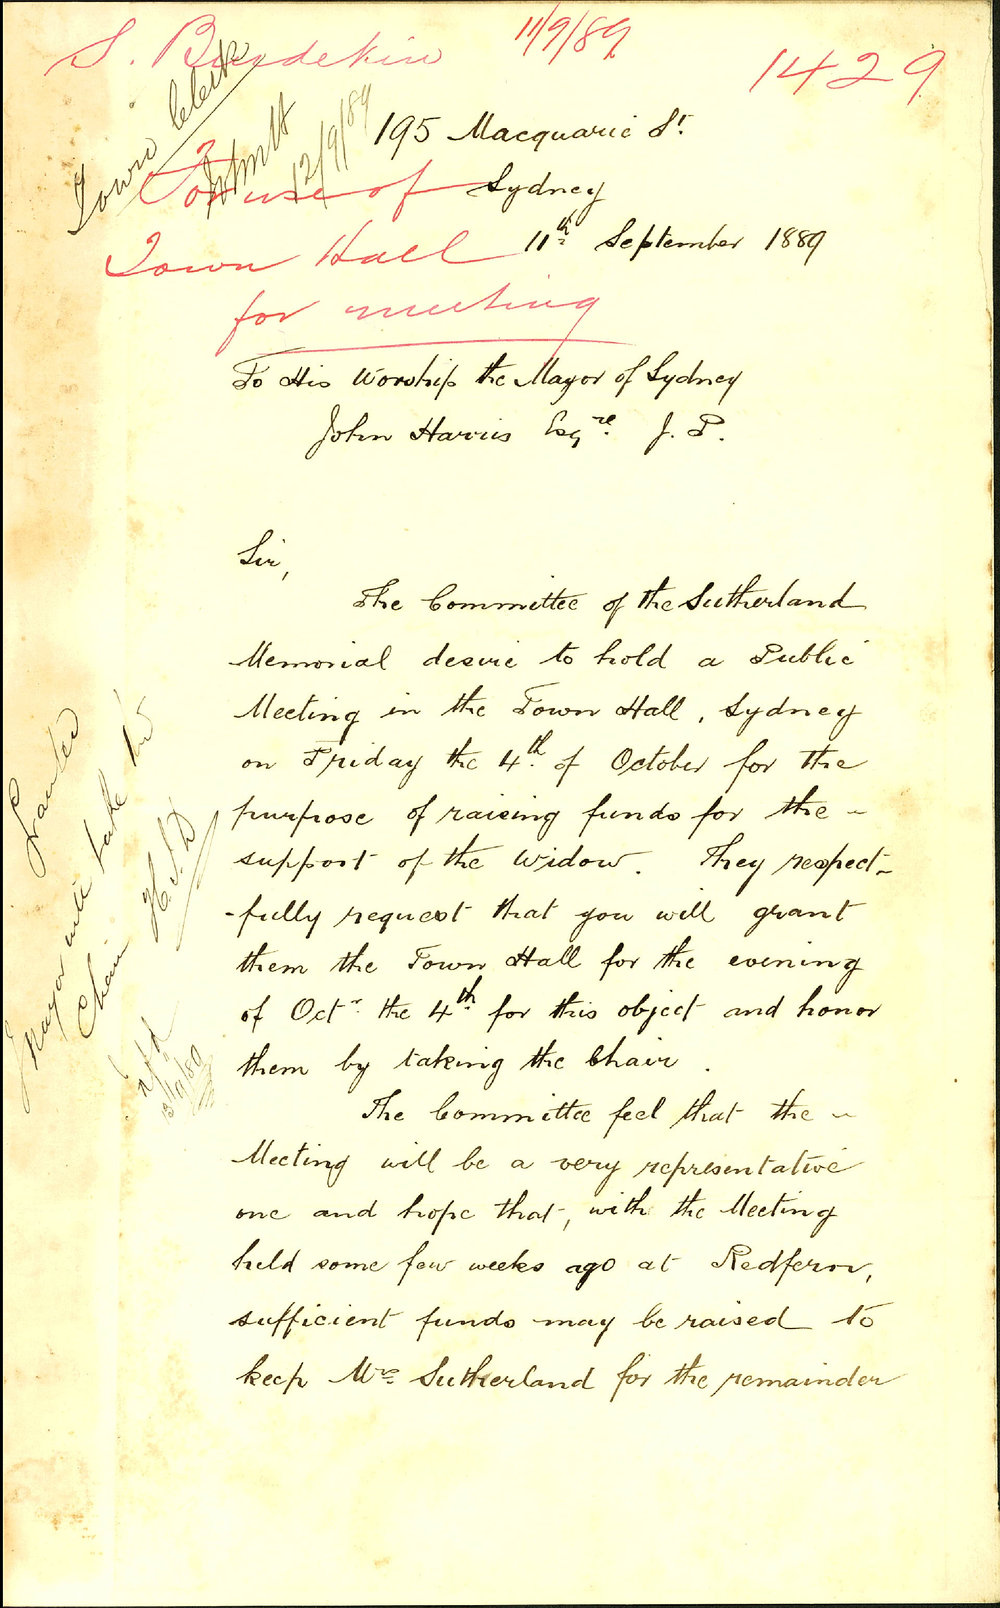 S. Burdekin
11/9/89
1429
Town Clerk
12/9/89
For use of
Town Hall
for meeting
195 Macquarie St.
Sydney
11th September 1889
To His Worship the Mayor of Sydney
John Harris Esqre. J. P.
Sir,
The Committee of the Sutherland
Memorial desire to hold a Public
Meeting in the Town Hall, Sydney
on Friday the 4th of October for the
purpose of raising funds for the -
support of the Widow. They respect-
-fully request that you will grant
them the Town Hall for the evening
of Octr. the 4th for this object and honor
them by taking the Chair.
The Committee feel that the -
Meeting will be a very representative
one and hope that, with the Meeting
held some few weeks ago at Redfern,
sufficient funds may be raised to
keep Mrs Sutherland for the remainder
Granted
Mayor will take the
Chair
13/9/89